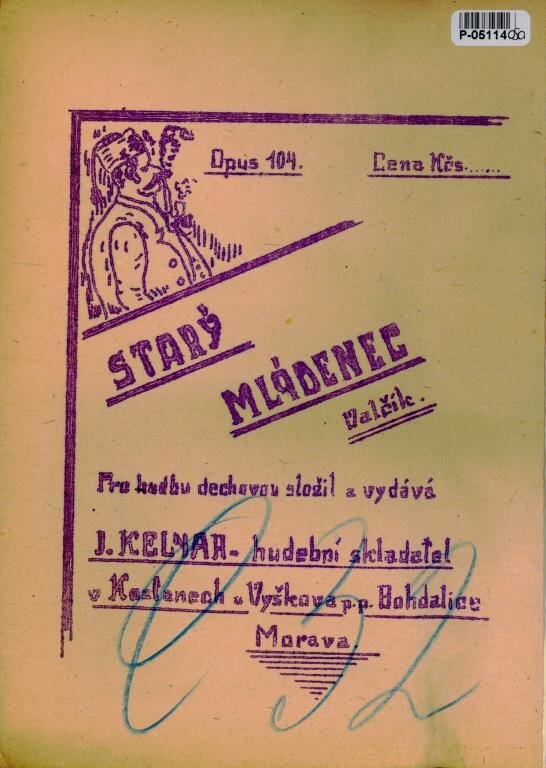 P-05114
Opus 104.
Cena Kčs......
STARÝ
MLÁDENEC
Valčík.
Pro hudbu dechovou složil a vydává
J. KELNAR- hudební skladatel
v Kozlanech u Vyškova p.p. Bohdalice
Morava
032